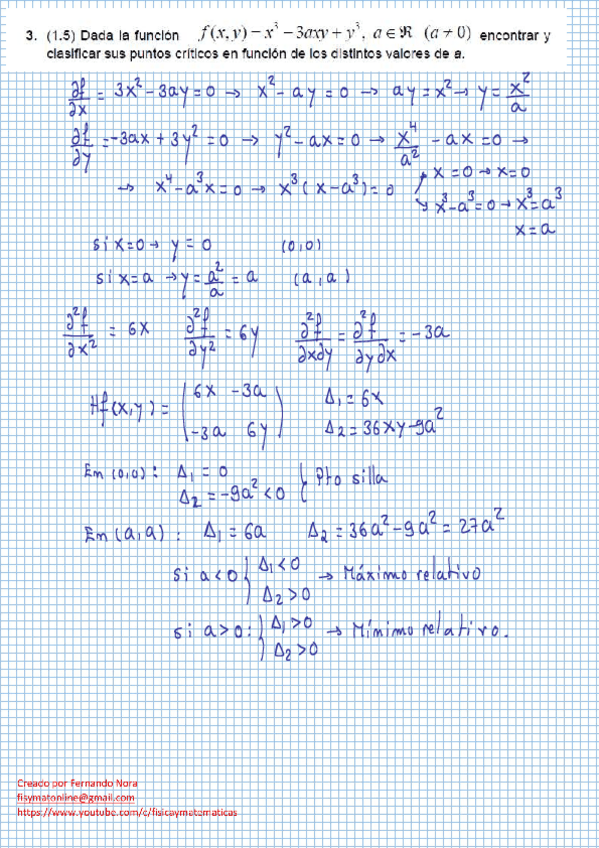 3. (1.5) Dada la función f(x,y) − x³ − 3axy + y³, a ∈ ℜ (a ≠ 0) encontrar y
clasificar sus puntos críticos en función de los distintos valores de a.
∂f/∂x = 3x² − 3ay = 0 → x² − ay = 0 → ay = x² → y = x²/a
∂f/∂y = −3ax + 3y² = 0 → y² − ax = 0 → x⁴/a² − ax = 0 →
→ x⁴ − a³x = 0 → x³(x − a³) = 0 x = 0 → x = 0
x³ − a³ = 0 → x³ = a³
x = a
si x = 0 → y = 0 (0,0)
si x = a → y = a²/a = a (a,a)
∂²f/∂x² = 6x ∂²f/∂y² = 6y ∂²f/∂x∂y = ∂²f/∂y∂x = −3a
Hf(x,y) = (6x −3a; −3a 6y) Δ₁ = 6x
Δ₂ = 36xy − 9a²
Em (0,0): Δ₁ = 0
Δ₂ = −9a² < 0 } Pto silla
Em (a,a): Δ₁ = 6a Δ₂ = 36a² − 9a² = 27a²
Si a < 0 { Δ₁ < 0
Δ₂ > 0 → Máximo relativo
si a > 0: { Δ₁ > 0
Δ₂ > 0 → Mínimo relativo.
Creado por Fernando Nora
fisymatonline@gmail.com
https://www.youtube.com/c/fisicaymatematicas